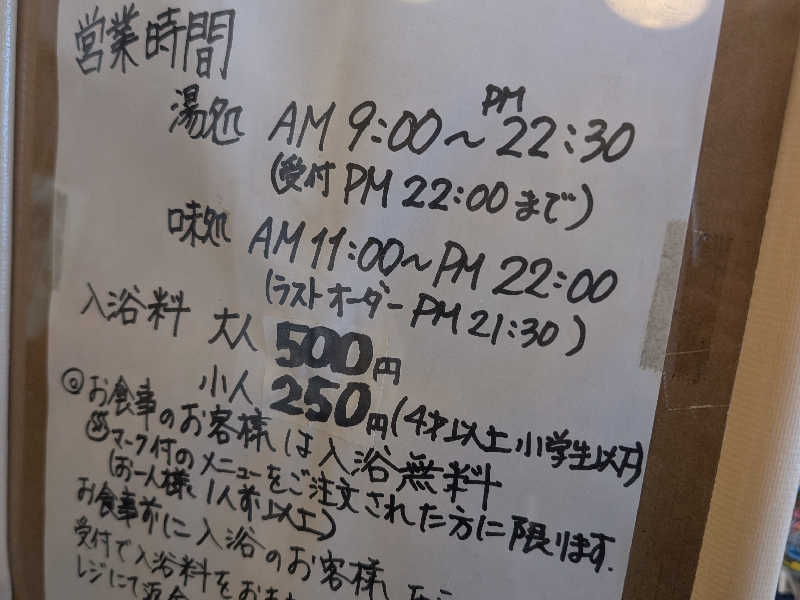 営業時間
湯処 AM 9:00～PM 22:30
(受付 PM 22:00 まで)
味処 AM 11:00～PM 22:00
(ラストオーダー PM 21:30)
入浴料 大人 500円
小人 250円(4才以上小学生以下)
◎お食事のお客様は入浴無料
マーク付のメニューをご注文された方に限ります.
(お一人様、1人前以上)
お食事前に入浴のお客様
受付で入浴料をお
レジにて返金